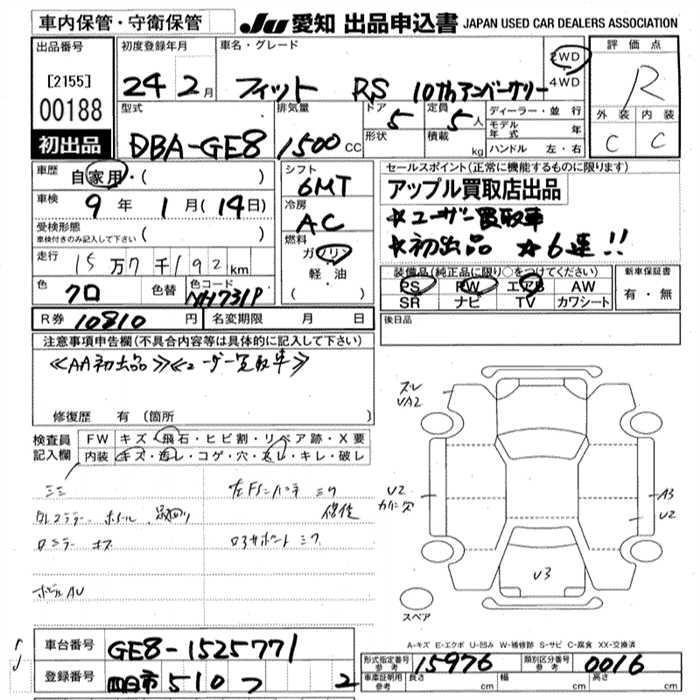 車内保管・守衛保管
JU 愛知 出品申込書 JAPAN USED CAR DEALERS ASSOCIATION
出品番号
[2155]
00188
初出品
初度登録年月
24 2月
車名・グレード
フィット RS 10thアニバーサリー
2WD
4WD
評価点
R
外装 内装
C C
型式
DBA-GE8
排気量
1500 CC
ドア
5
形状
定員
5人
積載 kg
ディーラー・並行
モデル年式 年
ハンドル 左・右
車歴
自家用・( )
車検
9年 1月(14日)
受検形態
車検付きのみ記入して下さい ( )
走行
15万7千192km
色
クロ
色替
色コード
NH731P
シフト
6MT
冷房
AC
燃料
ガソリン
軽・油
( ・ )
セールスポイント(正常に機能するものに限ります)
アップル買取店出品
☆ユーザー買取車
☆初出品 ☆6速!!
装備品(純正品に限り○をつけてください)
PS PW エアB AW
SR ナビ TV カワシート
新車保証書
有・無
R券 10810円
名変期限 月 日
後日品
注意事項申告欄(不具合内容等は具体的に記入して下さい)
≪AA初出品≫≪ユーザー買取車≫
修復歴 有(箇所 )
検査員記入欄
FW キズ・飛石・ヒビ割・リペア跡・X要
内装 キズ・汚レ・コゲ・穴・スレ・キレ・破レ
ズレ
UA2
U2
A3
U2
U3
スペア
A-キズ E-エクボ U-凹み W-補修跡 S-サビ C-腐食 XX-交換済
車台番号
GE8-1525771
登録番号
四日市 510 つ 2
形式指定番号
参考
15976
類別区分番号
参考
0016
車庫証明用
参考
長さ cm 幅 cm 高さ cm